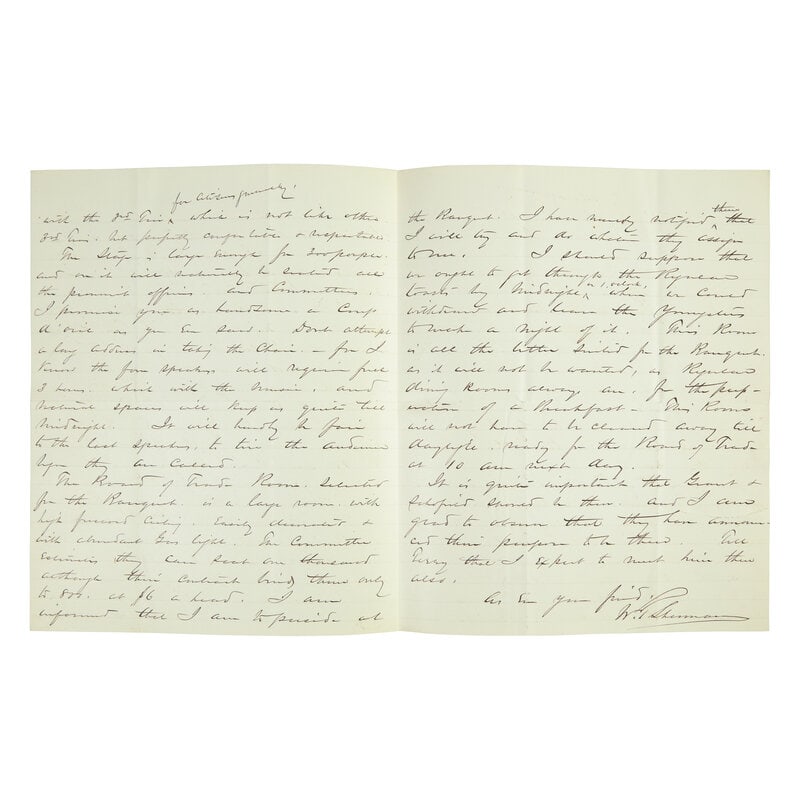 for Citizens generally
with the 3rd Tier, which is not like other
3rd Tiers. but perfectly comfortable & respectable.
The Stage is large enough for 300 people.
and on it will naturally be seated all
the prominent officers. and Committees
I promise you as handsome a Coup
d'oeil as you ever saw. Don't attempt
a long address in taking the Chair. — for I
Know the four speakers will require full
3 hours. which with the music, and
natural spaces will keep us quite till
midnight. It will hardly be fair
to the last speakers, to tire the audience
before they are called.
The Board of Trade Room. selected
for the Banquet. is a large room with
high frescoed Ceiling. Easily decorated &
with abundant Gas light. The Committee
estimates they can seat one thousand
although their Contract binds them only
to 800. at $6 a head. I am
informed that I am to preside at
the Banquet. I have merely notified them that
I will try and do whatever they assign
to me. I should suppose that
we ought to get through the Regular
toasts by Midnight, or 1, oclock, when we could
withdraw and leave the Youngsters
to make a night of it. This Room
is all the better suited for the Banquet.
as it will not be wanted, as Regular
dining Rooms always are. for the prep-
aration of a Breakfast — This Room
will not have to be cleaned away till
daylight. ready for the Board of Trade
at 10 am next day.
It is quite important that Grant &
Schofield should be there. and I am
glad to observe that they have announ-
ced their purpose to be there. Tell
Terry that I expect to meet him there
also.
As Ever your friend,
W. T. Sherman